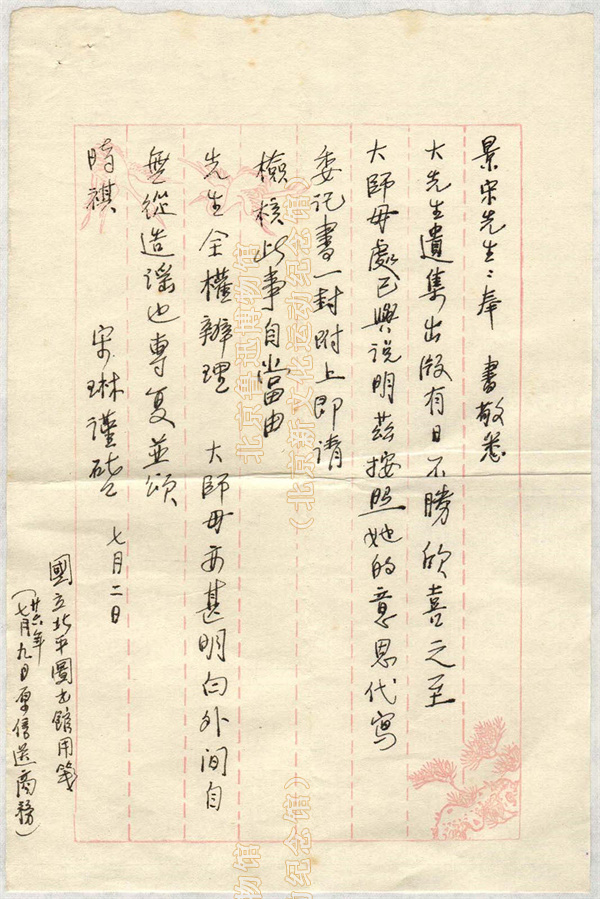 景宋先生：奉 書敬悉
大先生遺集出版有日不勝欣喜之至
大師母處已與說明茲按照她的意思代寫
委託書一封附上即請
檢核此事自當由
先生全權辦理 大師母亦甚明白外間自
無從造謠也專复並頌
時祺
宋琳謹啓 七月二日
國立北平圖書館用箋
（廿六年七月九日原信送商務）
北京鲁迅博物馆
（北京新文化运动纪念馆）
博物馆
动纪念馆）